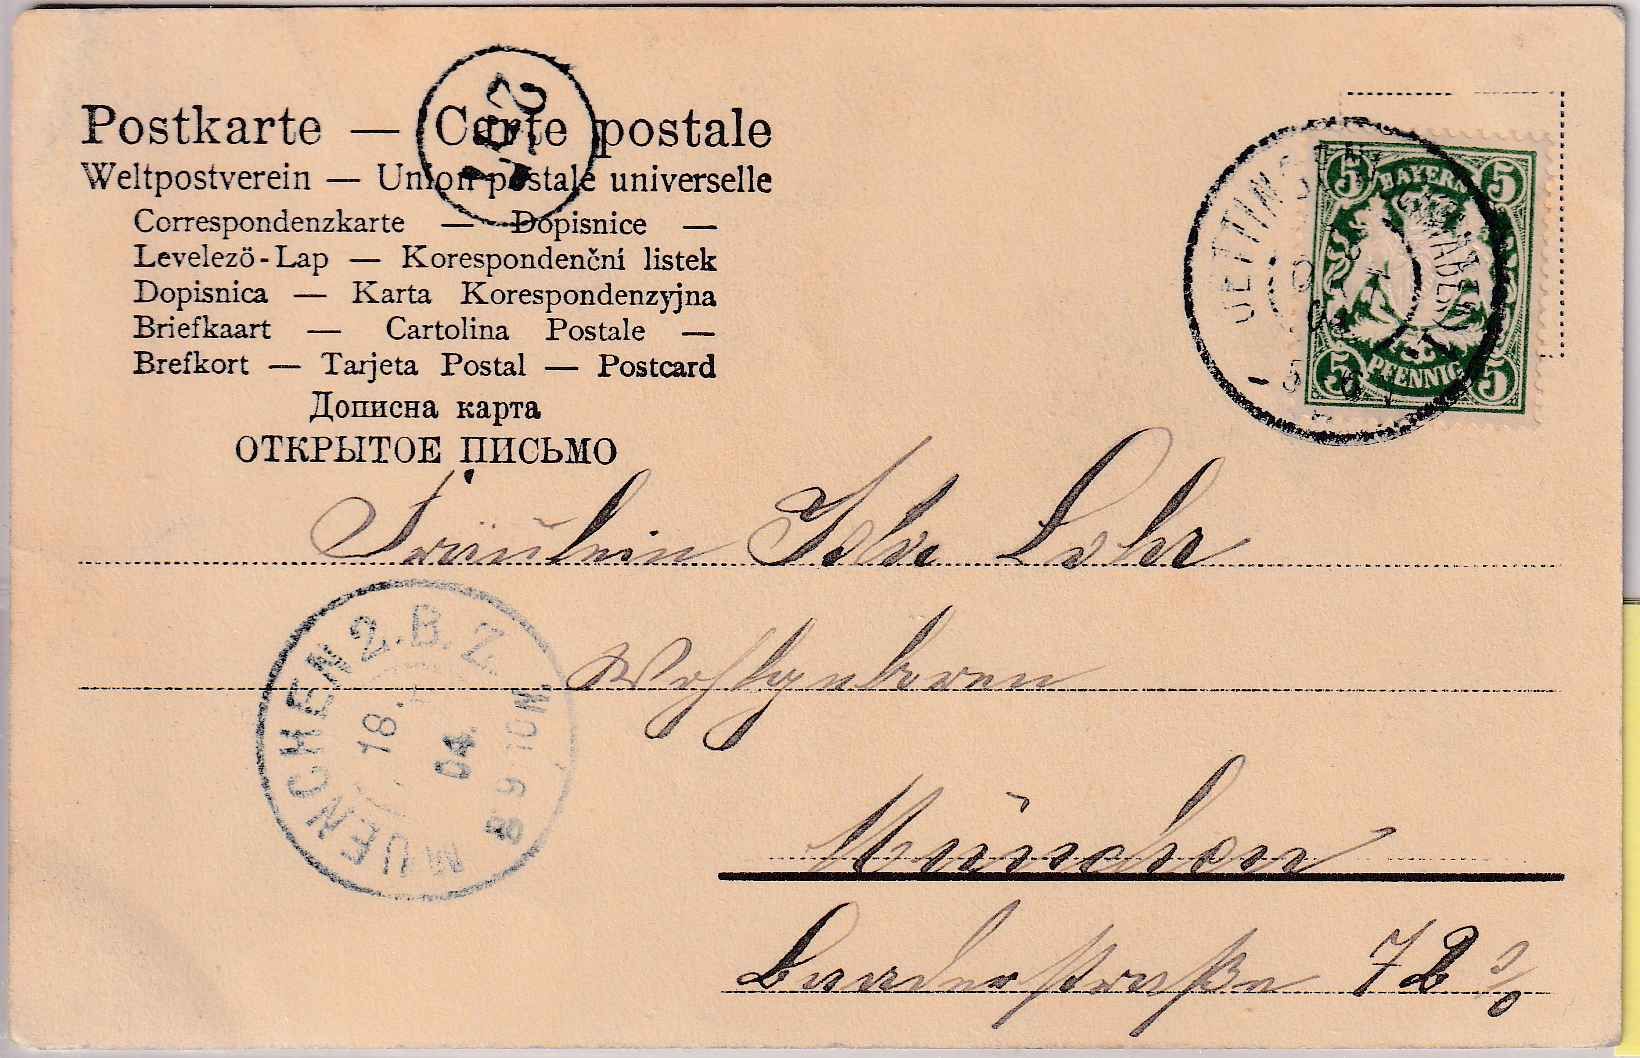 Postkarte — Carte postale
Weltpostverein — Union postale universelle
Correspondenzkarte — Dopisnice —
Levelezö-Lap — Korespondenční listek
Dopisnica — Karta Korespondenzyjna
Briefkaart — Cartolina Postale —
Brefkort — Tarjeta Postal — Postcard
Дописна карта
ОТКРЫТОЕ ПИСЬМО
5 BAYERN 5
5 PFENNIG 5
OETTINGEN
Fräulein Ida Lohr
Wohlgeboren
MUENCHEN 2.B.Z.
18.
04.
8 9 10 N.
München
Baaderstraße 72